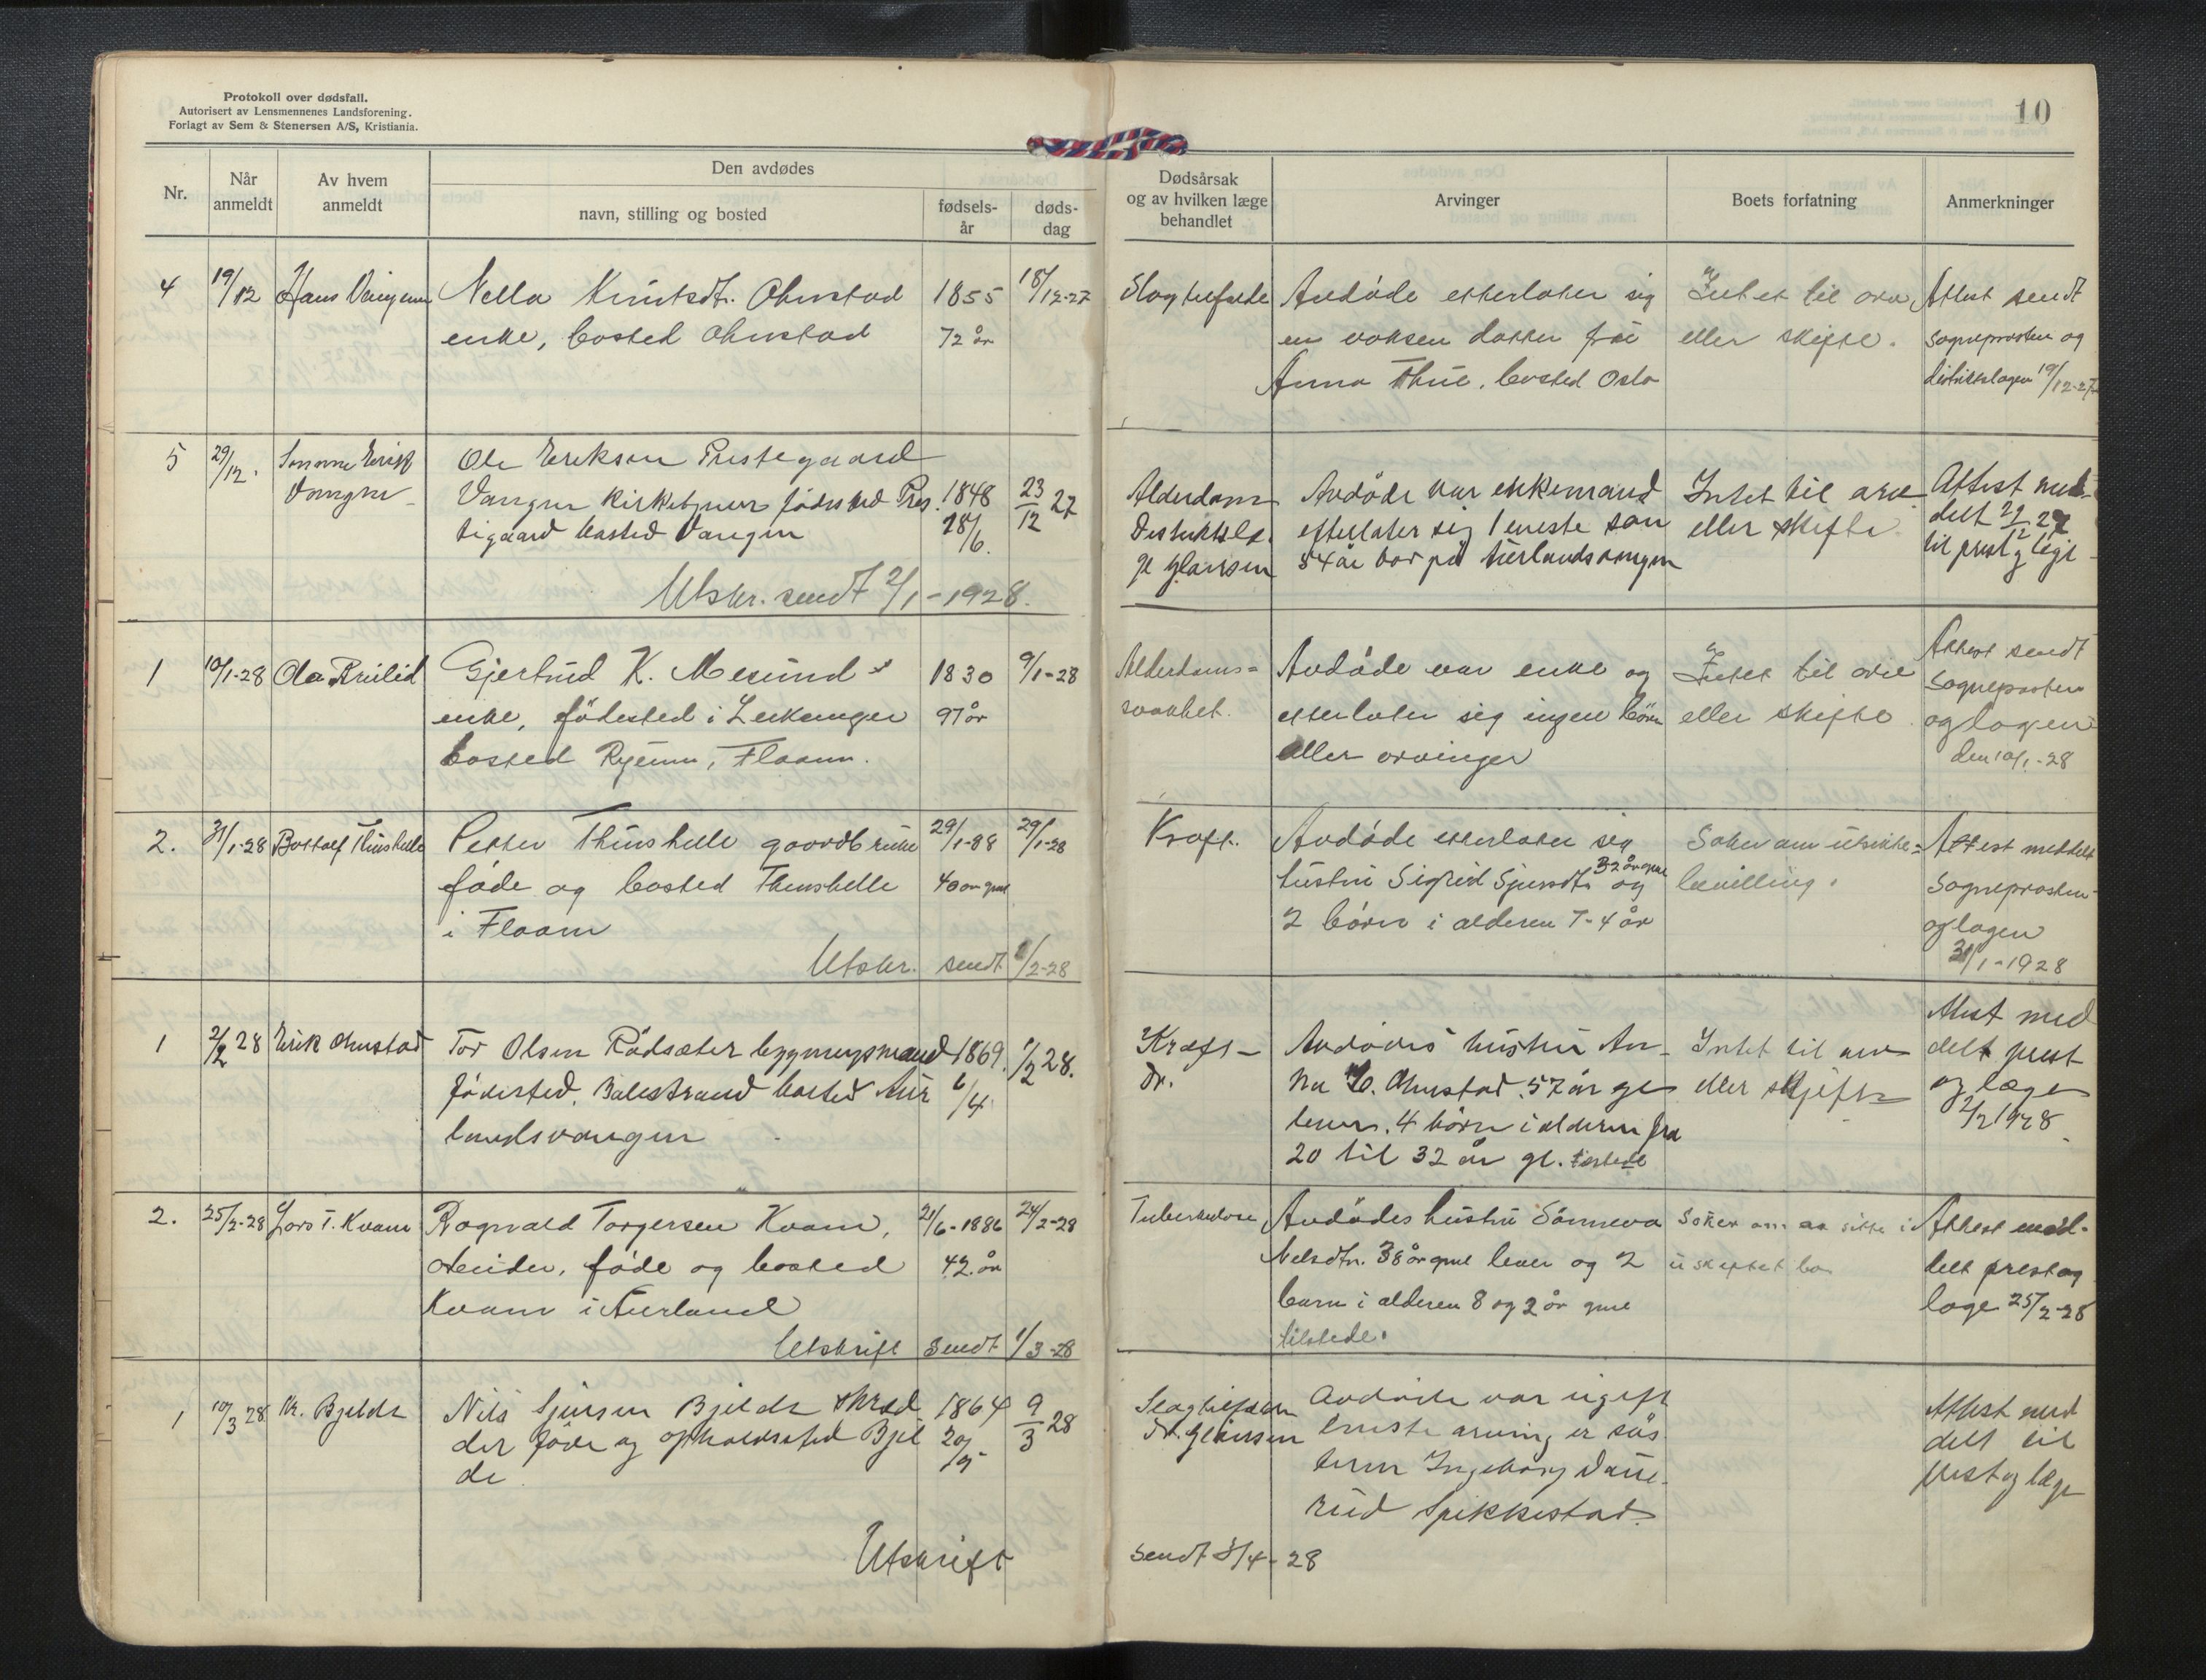 Protokoll over dødsfall.
Autorisert av Lensmennenes Landsforening.
Forlagt av Sem & Stenersen A/S, Kristiania.
10
Nr.
Når
anmeldt
Av hvem
anmeldt
Den avdødes
navn, stilling og bosted
fødsels-
år
døds-
dag
Dødsårsak
og av hvilken læge
behandlet
Arvinger
Boets forfatning
Anmerkninger
4
19/12
Hans Vangen
Nella Knutsdt. Ohnstad
enke, bosted Ohnstad
1855
72 år
18/12-27
Slagtilfælde
Avdøde etterlater sig
en voksen datter frü
Anna Thue, bosted Oslo
Intet til arv
eller skifte.
Attest sendt
sogneprosten og
distriktslægen 19/12-27
5
29/12.
Erik
Vangen
Ole Eriksen Prestegaard
Vangen kirketjener fødested Pres
tigaard bosted Vangen
1848
18/6.
23/12 27
Alderdom
Distriktslæ
ge Clausen
Avdøde var enkemand
efterlater sig 1 eneste søn
54 år bor på Aurlandsvangen
Intet til arv
eller skifte
Attest med-
delt 29/12 27
til prest og læge
Utskr. sendt 2/1-1928.
1
10/1-28
Ola Brulid
Gjertrud K.
enke, fødested i Leikanger
bosted Ryum, Flaam.
1830
97 år
9/1-28
Alderdoms=
svakhet.
Avdøde var enke og
etterlater sig ingen börn
eller arvinger
Intet til arv
eller skifte
Attest sendt
sogneprosten
og lægen
den 10/1.-28
2.
31/1-28
Botolf Thunshelle
Petter Thunshelle gaardbruker
føde og bosted Thunshelle
i Flaam
29/1-88
40 år gml
29/1-28
Kræft.
Avdøde etterlater sig
hustru Sigrid Sjursdt. 32 år gml og
2 børn i alderen 7-4 år
Søker om uskifte=
bevilling.
Attest meddelt
sogneprosten
og lægen
31/1-1928
Utskr. sendt 1/2-28
1
2/2 28
Erik Ohnstad
Tor Olsen Rødsæter bygningsmand
fødested. Balestrand bosted Aur
landsvangen
1869.
6/4
1/2 28.
Kræft-
Dr.
Avdødes hustru An-
na O. Ohnstad. 57 år gl
lever. 4 børn i alderen fra
20 til 32 år gl.
Intet til arv
eller skifte
Attest med
delt prest
og læge
2/2 1928
2.
25/2-28
Lars T. Kvam
Ragnvald Torgersen Kvam,
Arbeider, føde og bosted
Kvam i Aurland
21/6-1886
42 år
24/2-28
Tuberkulose
Avdødes hustru Sønneva
Nelsdtr. 38 år gml lever og 2
barn i alderen 8 og 2 år gml
tilstede.
Søker om aa sitte i
uskiftet bo
Attest med-
delt prest og
læge 25/2-28
Utskrift sendt 1/3-28
1
10/3 28
Kr. Bjelde
Nils Sjursen Bjelde skræd
der føde og opholdssted Bjel
de
1864
20/5
9/3 28
Slagtilfælde
Dr. Clausen
Avdøde var ugift
eneste arving er søs
teren Ingeborg Daue-
rud Spikkestad.
Attest med
delt til
prest og læge
Utskrift sendt 8/4-28